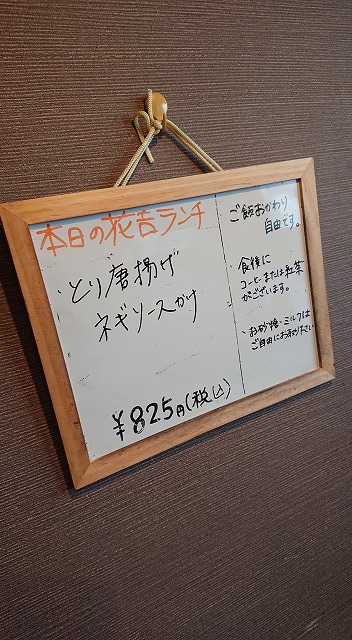 本日の花吉ランチ
とり唐揚げ
ネギソースがけ
¥825円(税込)
ご飯おかわり
自由です。
食後に
コーヒーまたは紅茶
がございます。
・お砂糖・ミルクは
ご自由にお取り下さい